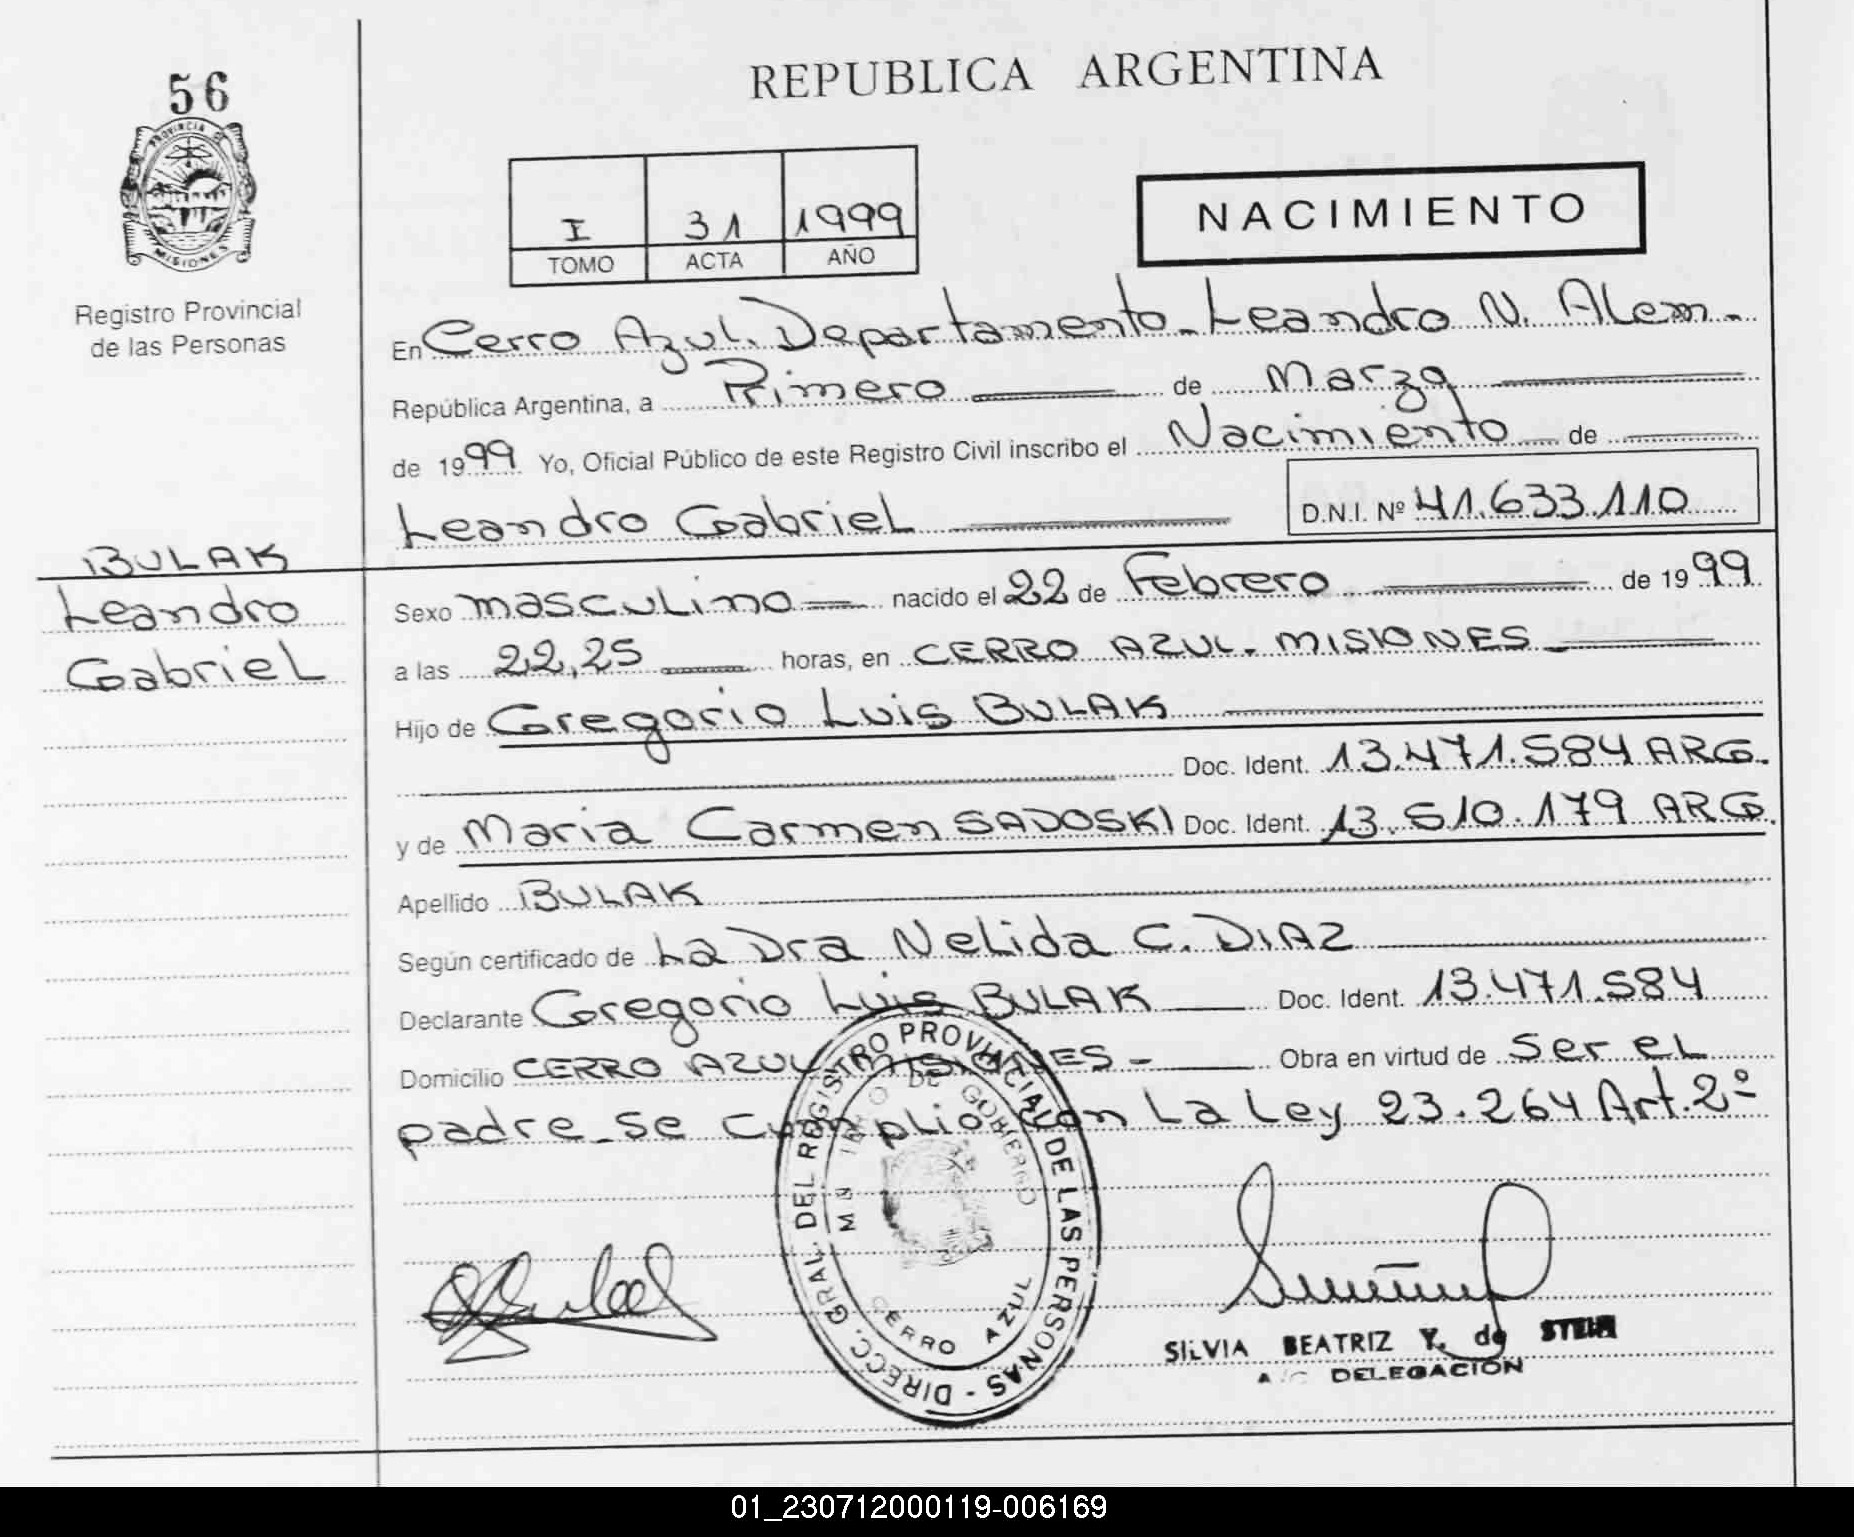 56
PROVINCIA DE
MISIONES
Registro Provincial
de las Personas
REPUBLICA ARGENTINA
I 31 1999
TOMO ACTA AÑO
NACIMIENTO
En Cerro Azul. Departamento Leandro N. Alem.
República Argentina, a Primero de Marzo
de 1999 Yo, Oficial Público de este Registro Civil inscribo el Nacimiento de
Leandro Gabriel D.N.I. Nº 41.633.110
BULAK
Leandro
Gabriel
Sexo masculino nacido el 22 de Febrero de 1999
a las 22,25 horas, en CERRO AZUL. MISIONES
Hijo de Gregorio Luis BULAK
Doc. Ident. 13.471.584 ARG.
y de Maria Carmen SADOSKI Doc. Ident. 13.610.179 ARG.
Apellido BULAK
Según certificado de La Dra Nelida C. DIAZ
Declarante Gregorio Luis BULAK Doc. Ident. 13.471.584
Domicilio CERRO AZUL MISIONES - Obra en virtud de ser el
padre - se cumplio con La Ley 23.264 Art. 2º
DIRECC. GRAL. DEL REGISTRO PROVINCIAL DE LAS PERSONAS -
DE GOBIERNO
CERRO AZUL
SILVIA BEATRIZ Y. de STEIN
A/C DELEGACION
01_230712000119-006169